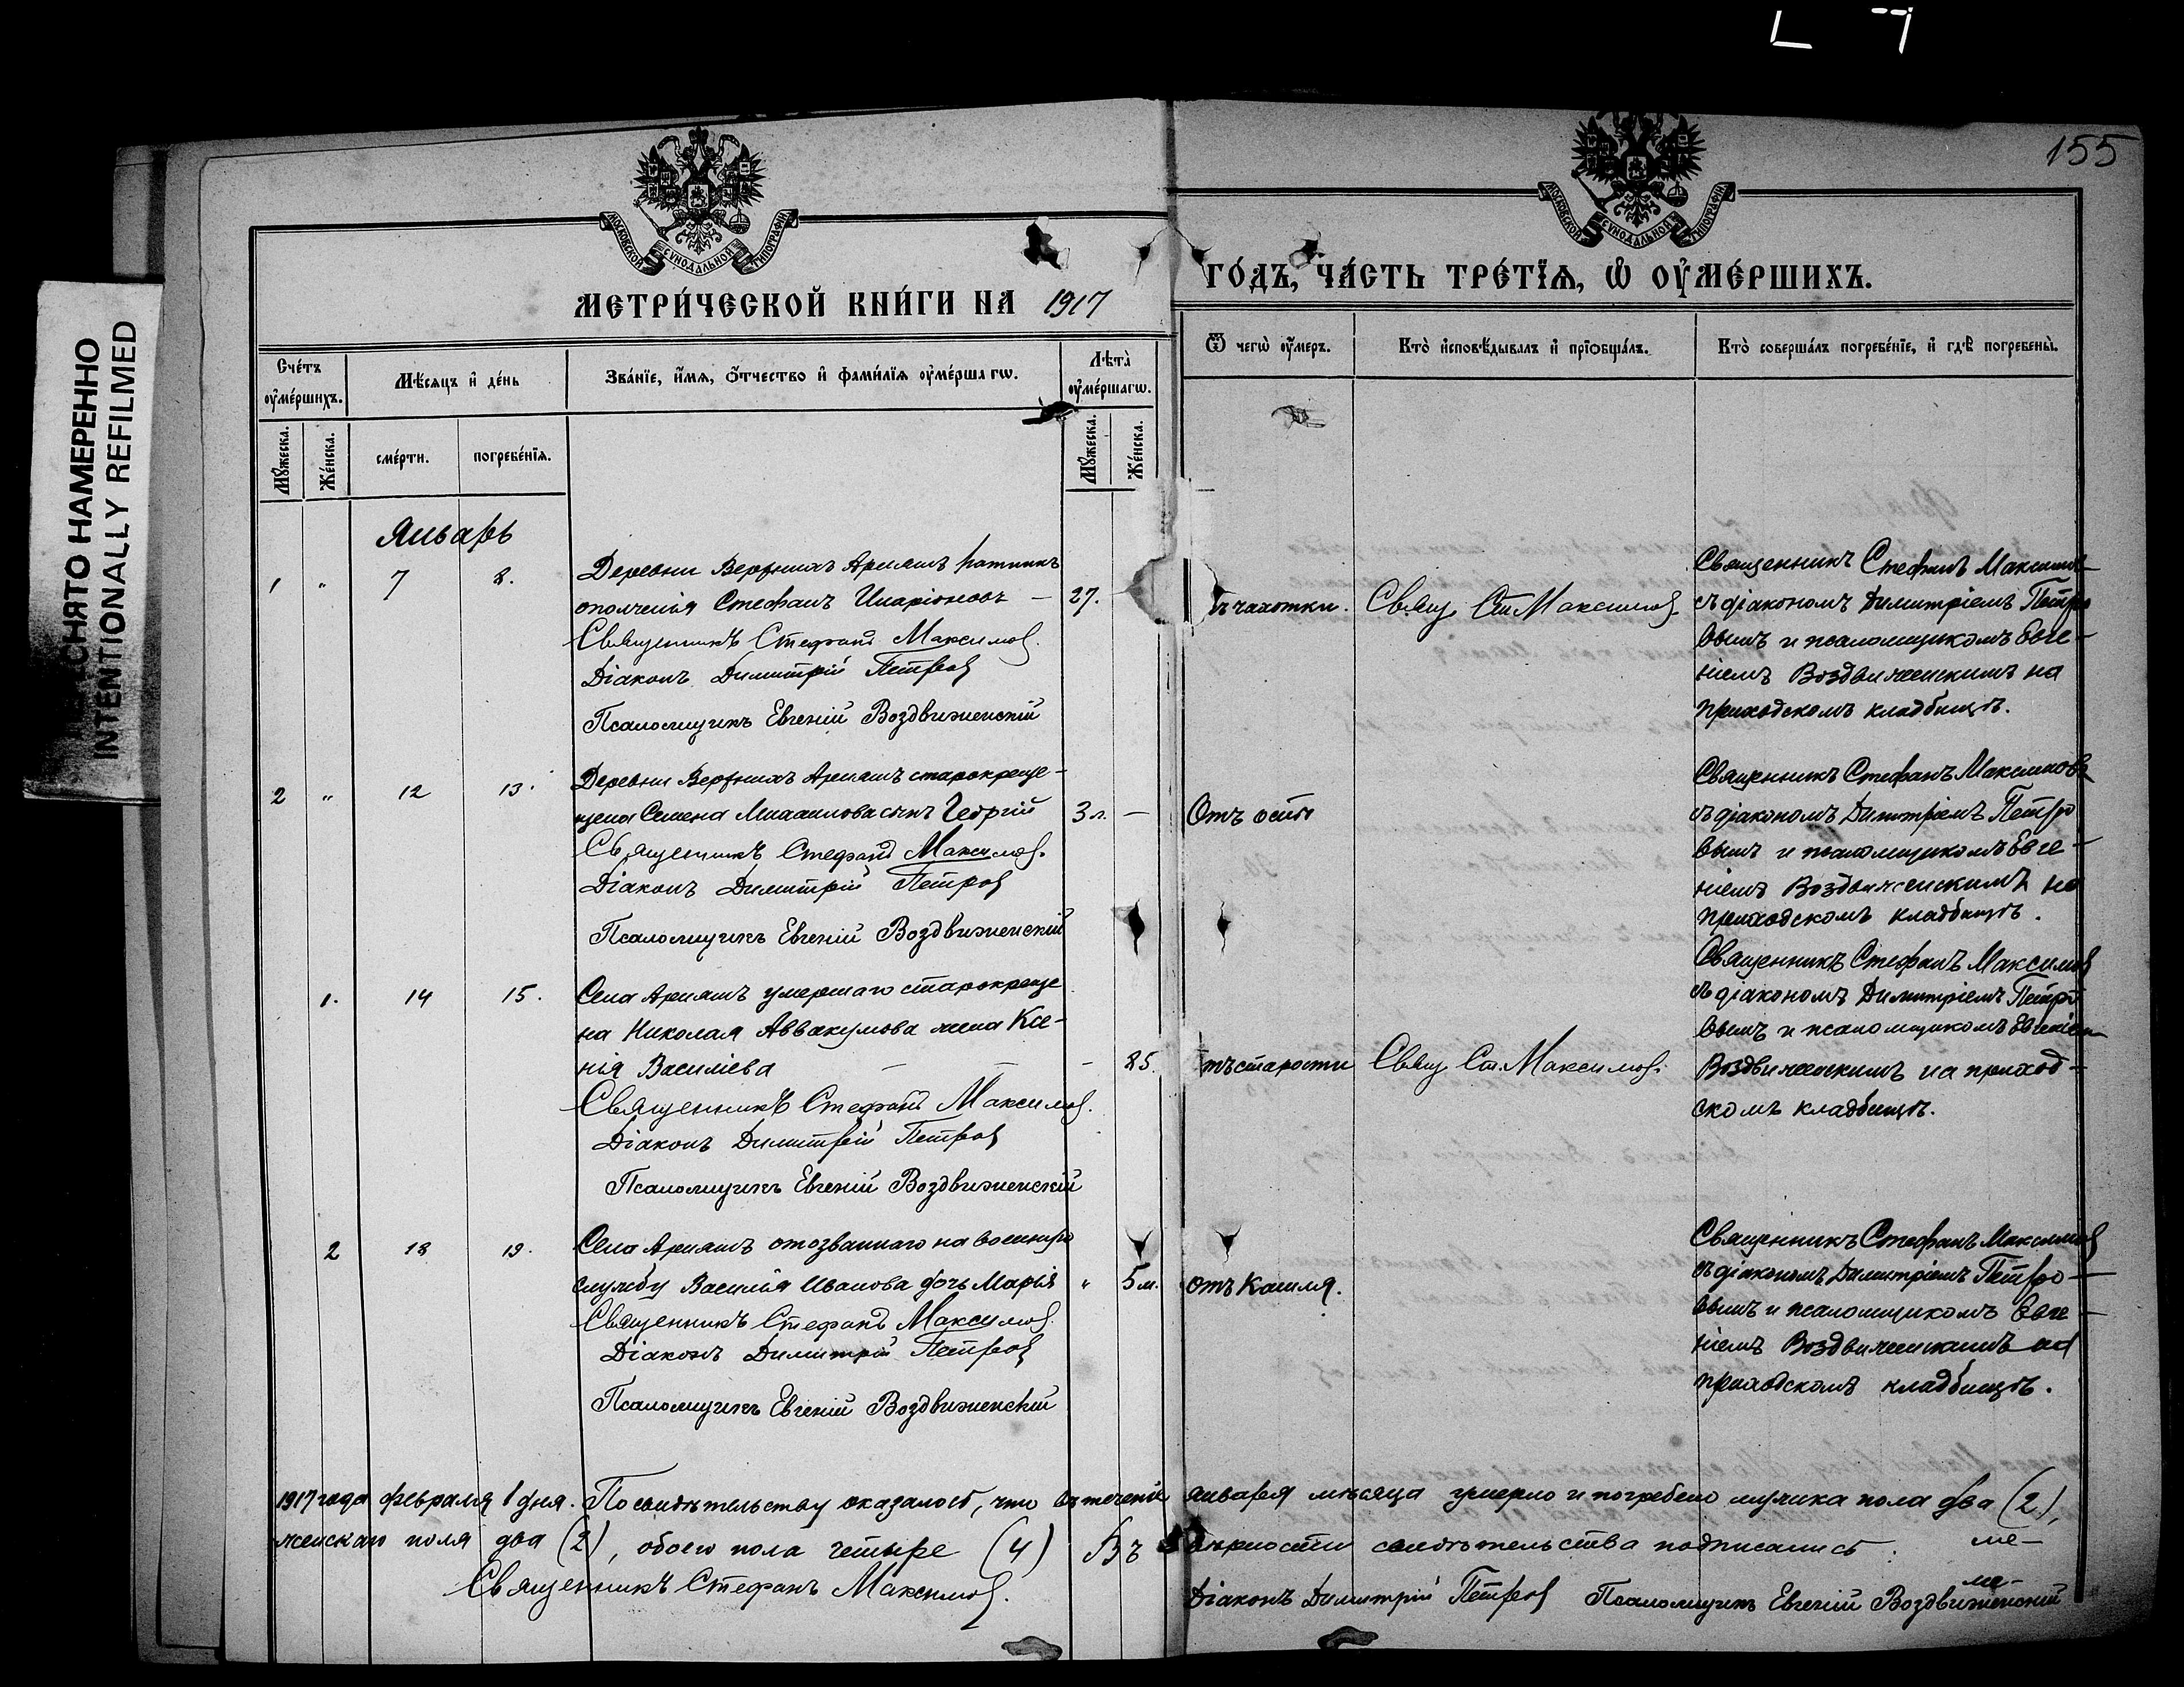 155
СНЯТО НАМЕРЕННО
INTENTIONALLY REFILMED
МОСКОВСКОЙ СѴНОДАЛЬНОЙ ТИПОГРАФІИ
МОСКОВСКОЙ СѴНОДАЛЬНОЙ ТИПОГРАФІИ
МЕТРИ́ЧЕСКОЙ КНИ́ГИ НА 1917
ГО́ДЪ, ЧА́СТЬ ТРЕ́ТЇѦ, Ѽ ОУ҆МЕ́РШИХЪ.
Сче́тъ оу҆ме́ршихъ.
Мѣ́сяцъ и҆ де́нь
Зва́нїе, и҆́мѧ, ѻ҆́тчество и҆ фами́лїѧ оу҆ме́ршагѡ.
Лѣ́та оу҆ме́ршагѡ.
Ѿ чегѡ̀ оу҆́меръ.
Кто̀ и҆сповѣ́дывалъ и҆ прїѻбща́лъ.
Кто̀ соверша́лъ погребе́нїе, и҆ гдѣ̀ погребены̀.
Мꙋ́жеска.
Же́нска.
сме́рти.
погребе́нїѧ.
Мꙋ́жеска.
Же́нска.
Январь
1 " 7 8.
Деревни Верхнихъ Арняшъ ратникъ
ополченія Стефанъ Иларіоновъ — 27.
Священникъ Стефанъ Максимов.
Діаконъ Димитрій Петров
Псаломщикъ Евгеній Воздвиженскій
тъ чахотки.
Свящ. Ст. Максимов.
Священникъ Стефанъ Максимов
съ діакономъ Димитріемъ Петро
вымъ и псаломщикомъ Евге-
ніемъ Воздвиженскимъ на
приходскомъ кладбищѣ.
2 " 12 13.
Деревни Верхнихъ Арняшъ старокреще-
щена Семена Михаилова сынъ Георгій 3 л. —
Священникъ Стефанъ Максимов.
Діаконъ Димитрій Петров
Псаломщикъ Евгеній Воздвиженскій
Отъ оспы
Священникъ Стефанъ Максимовъ
съ діакономъ Димитріемъ Петро
вымъ и псаломщикомъ Евге-
ніемъ Воздвиженскимъ на
приходскомъ кладбищѣ.
1. 14 15.
Села Арняшъ умершаго старокреще
на Николая Аввакумова жена Ксе-
нія Василіева — — — 85.
Священникъ Стефанъ Максимов.
Діаконъ Димитрій Петров
Псаломщикъ Евгеній Воздвиженскій
тъ старости
Свящ. Ст. Максимов.
Священникъ Стефанъ Максимов
съ діакономъ Димитріемъ Петро
вымъ и псаломщикомъ Евгеніем
Воздвиженскимъ на приход-
скомъ кладбищѣ.
2 18 19.
Села Арняшъ отозваннаго на военную
службу Василія Иванова дочь Марія " 5 м.
Священникъ Стефанъ Максимов.
Діаконъ Димитрій Петров
Псаломщикъ Евгеній Воздвиженскій
отъ Кашля.
Священникъ Стефанъ Максимов
съ діакономъ Димитріемъ Петро-
вымъ и псаломщикомъ Евге-
ніемъ Воздвиженскимъ на
приходскомъ кладбищѣ.
1917 года февраля 1 дня. По свидѣтельству оказалось, что въ теченіе января мѣсяца умерло и погребено мужска пола два (2),
женскаго пола два (2), обоего пола четыре (4) Въ вѣрности свидѣтельства подписались: ме-
Священникъ Стефанъ Максимов.
Діаконъ Димитрій Петров Псаломщикъ Евгеній Воздвиженский